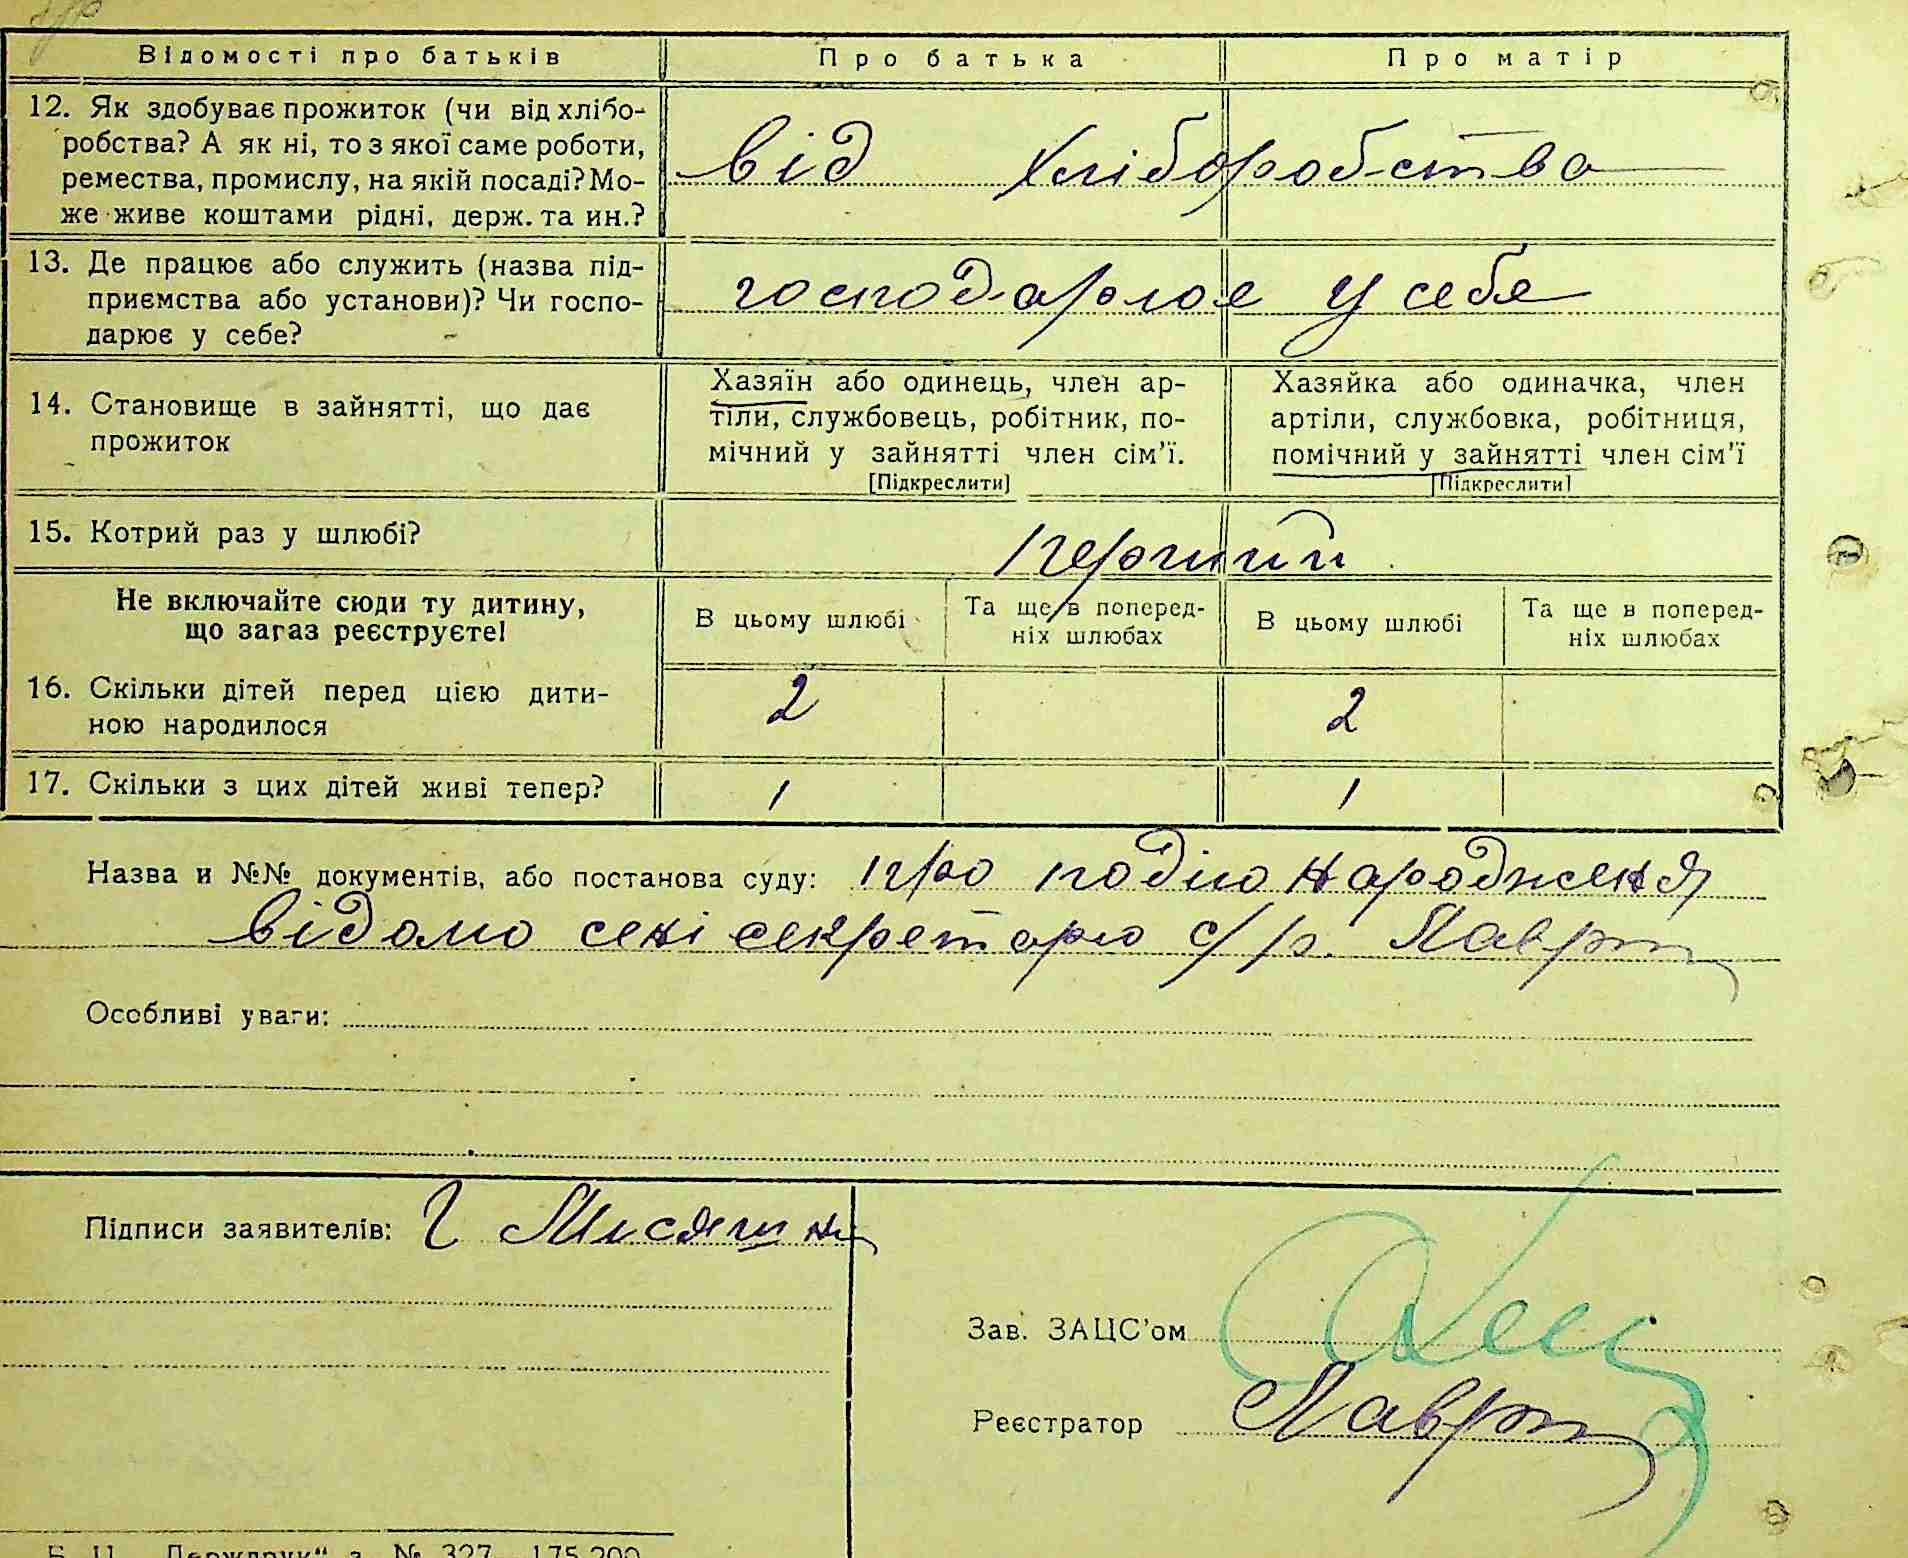 Відомості про батьків
Про батька
Про матір
12. Як здобуває прожиток (чи від хлібо-
робства? А як ні, то з якої саме роботи,
ремества, промислу, на якій посаді? Мо-
же живе коштами рідні, держ. та ин.?
від хліборобства
13. Де працює або служить (назва під-
приємства або установи)? Чи госпо-
дарює у себе?
господарює у себе
14. Становище в зайнятті, що дає
прожиток
Хазяїн або одинець, член ар-
тіли, службовець, робітник, по-
мічний у зайнятті член сім'ї.
[Підкреслити]
Хазяйка або одиначка, член
артіли, службовка, робітниця,
помічний у зайнятті член сім'ї
[Підкреслити]
15. Котрий раз у шлюбі?
перший
Не включайте сюди ту дитину,
що зараз реєструєте!
В цьому шлюбі
Та ще в поперед-
ніх шлюбах
В цьому шлюбі
Та ще в поперед-
ніх шлюбах
16. Скільки дітей перед цією дити-
ною народилося
2
2
17. Скільки з цих дітей живі тепер?
1
1
Назва и №№ документів, або постанова суду: про подію народження
відомо секретарю с/р. Лавр
Особливі уваги:
Підписи заявителів:
Зав. ЗАЦС'ом
Реєстратор Лавр
Держдрук" з. № 327—175.200